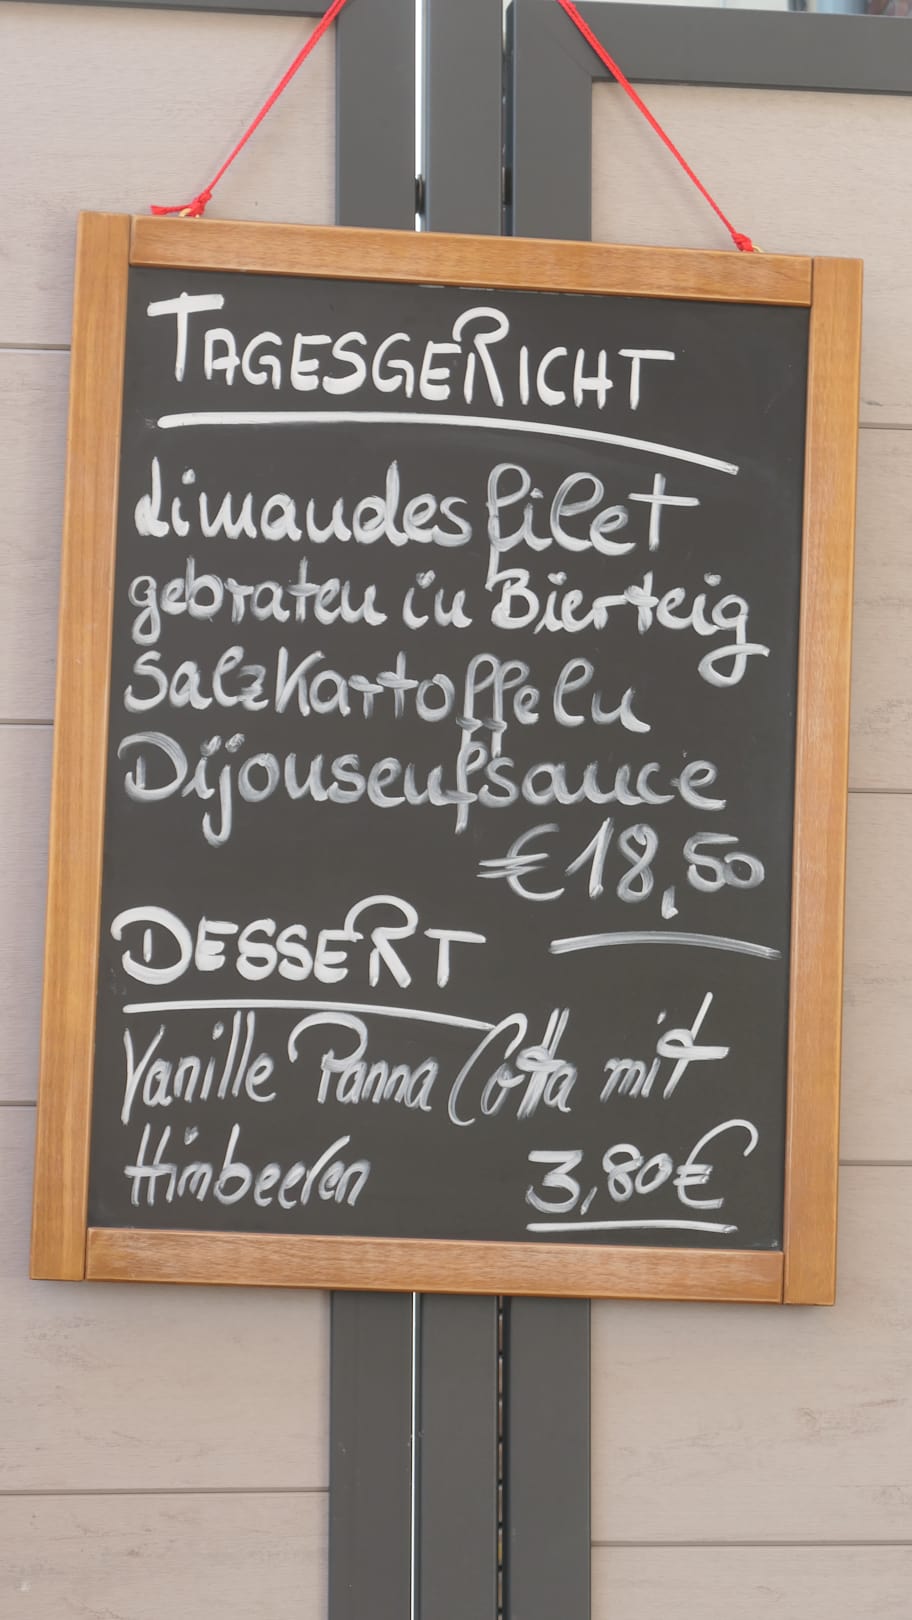 TAGESGERICHT
Limandesfilet
gebraten in Bierteig
Salzkartoffeln
Dijonsenfsauce
€18,50
DESSERT
Vanille Panna Cotta mit
Himbeeren 3,80€